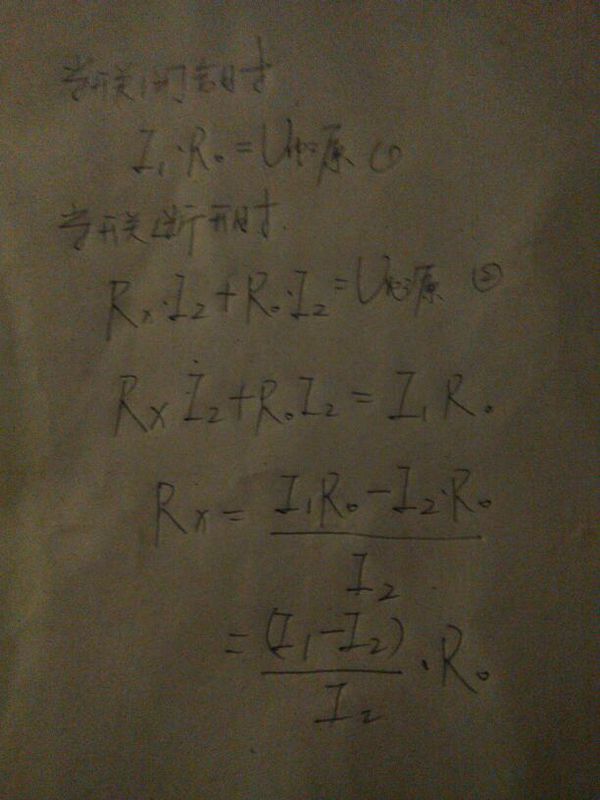 当开关闭合时
I₁·R₀=U电源 ①
当开关断开时
Rx·I₂+R₀·I₂=U电源 ②
RxI₂+R₀I₂=I₁R₀
Rx=\frac{I₁R₀-I₂·R₀}{I₂}
=\frac{(I₁-I₂)}{I₂}·R₀